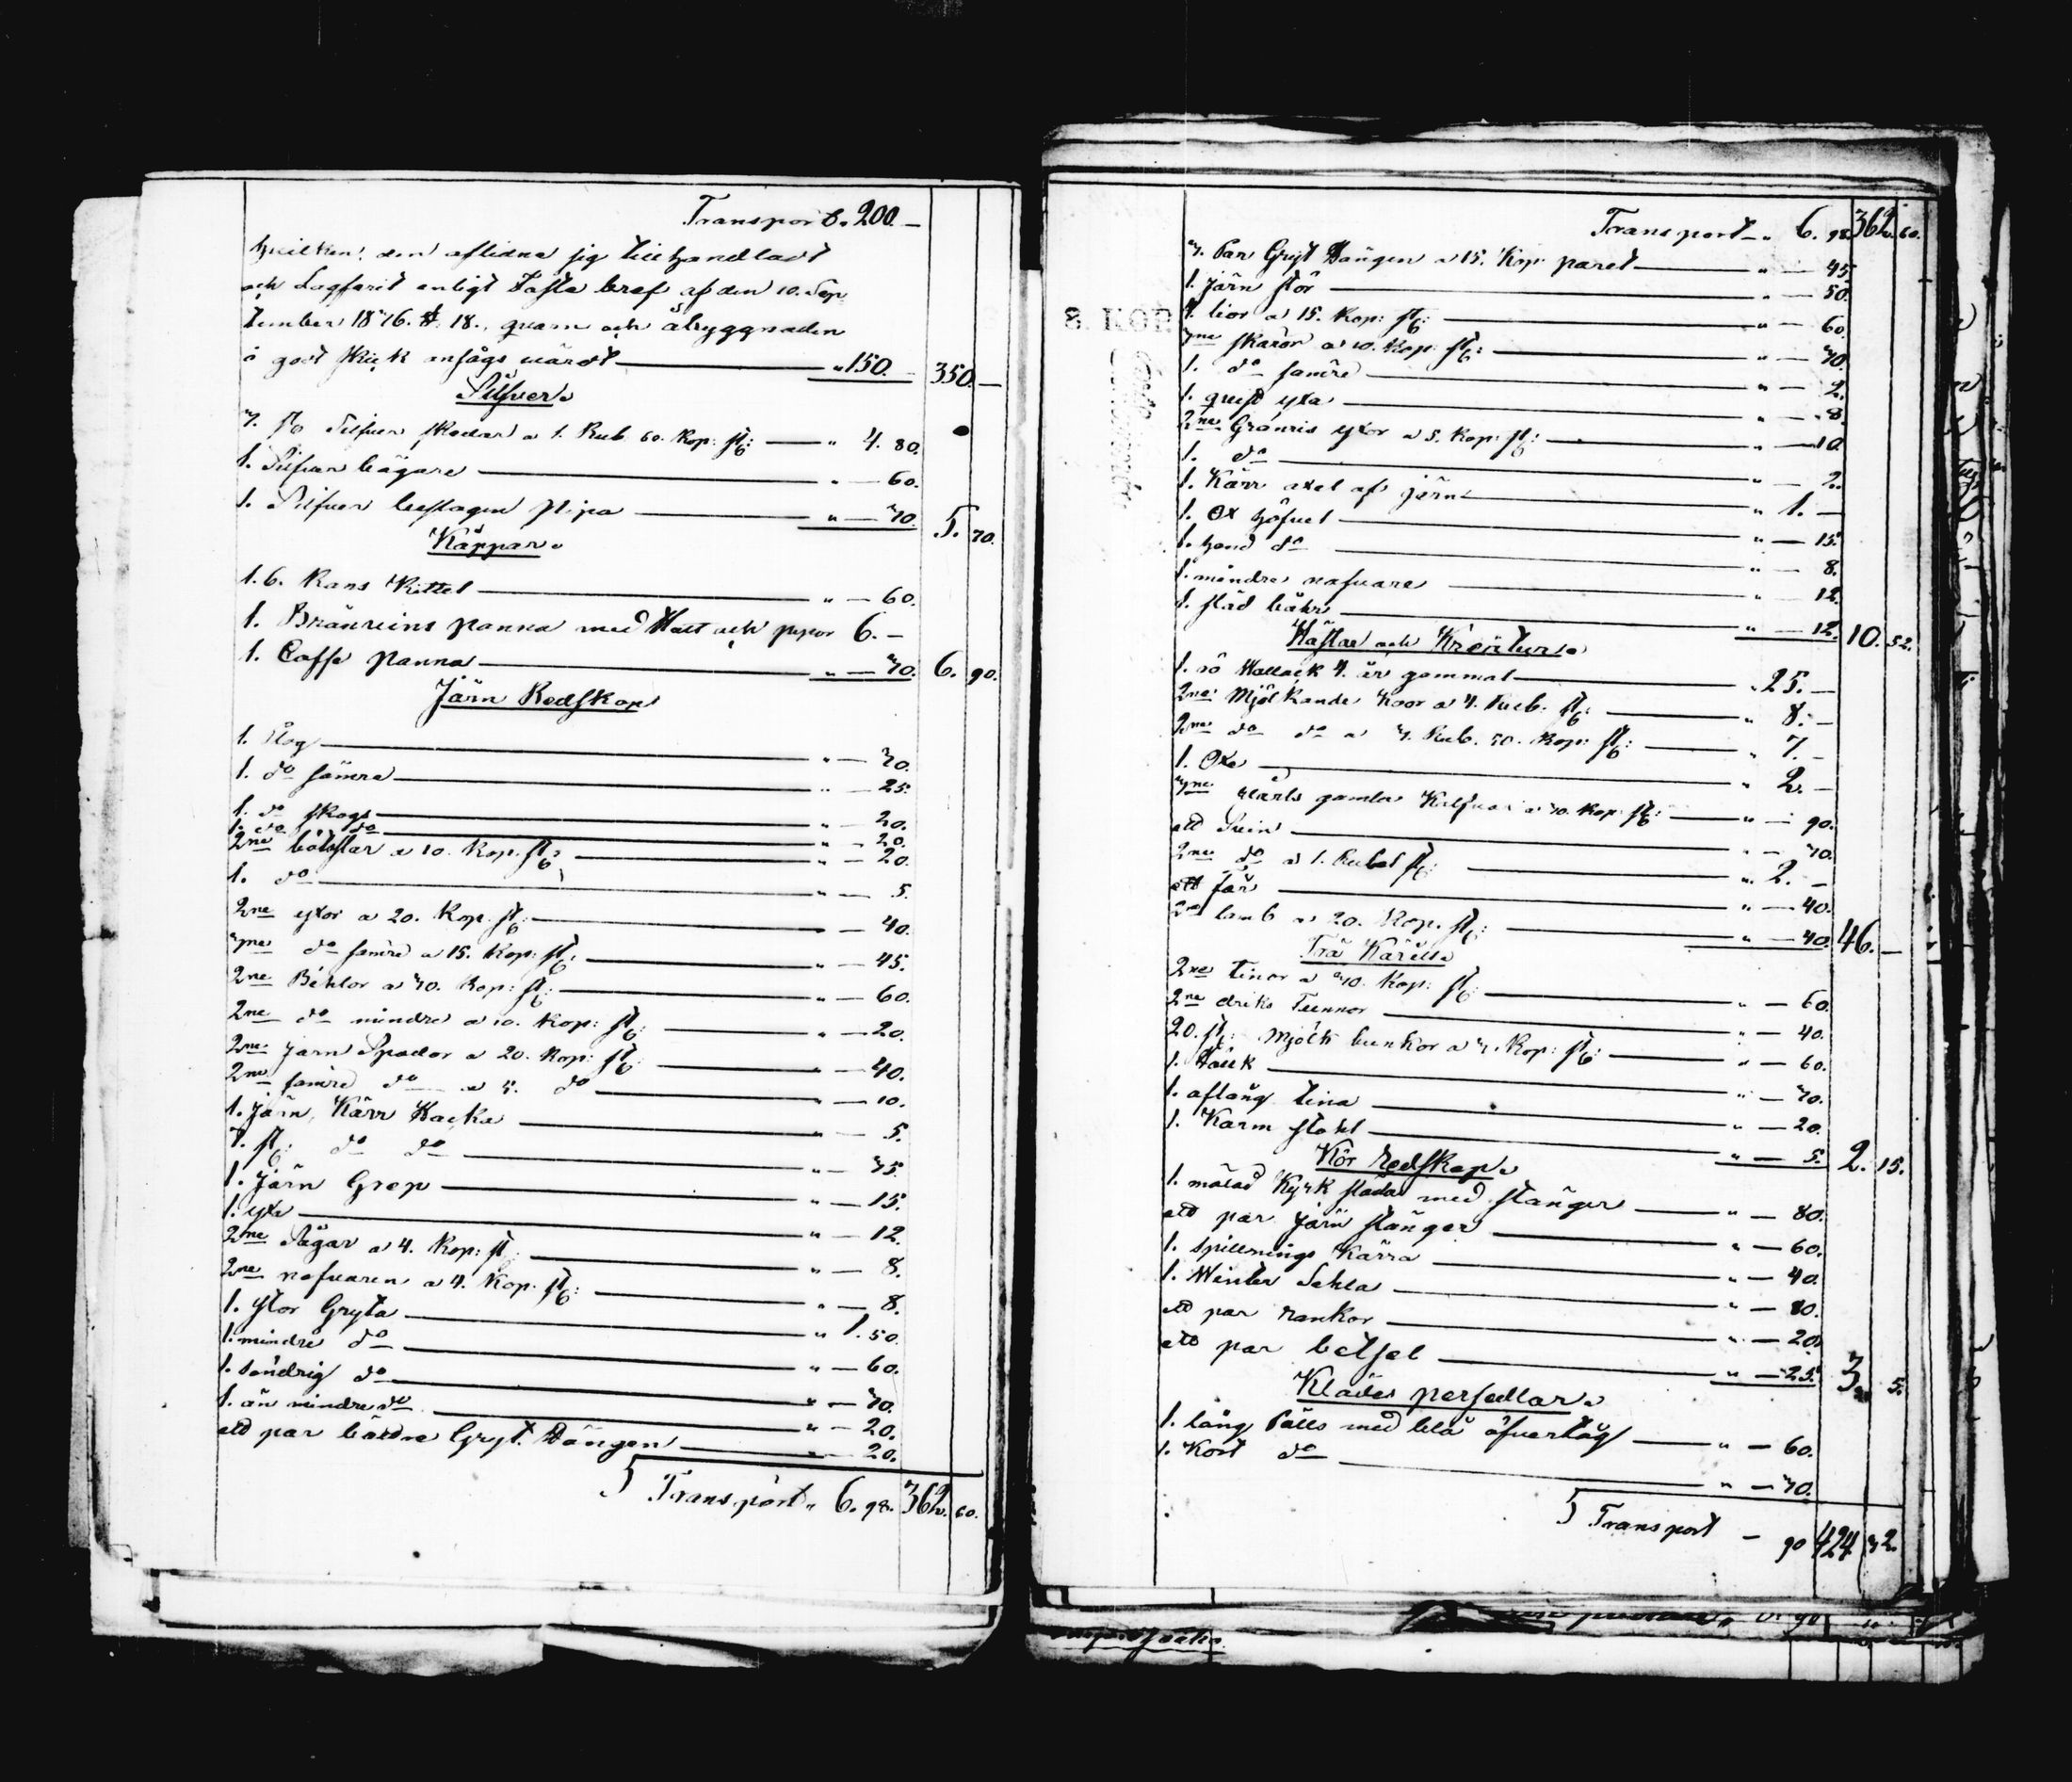 Transport. 200. —
hvilken, den aflidne sig tillhandladt
och Lagfarit enligt Fasta bref af den 10. Sep
tember 1836. § 18., qvarn och Åbyggnaden
i godt skick ansågs värdt — „ 150. — 350. —
Silfver.
3. st. Silfver skedar a 1. Rub. 60. Kop: st: — „ 4. 80.
1. Silfver bägare — „ — 60.
1. Silfver beslagen pipa — „ — 30. 5. 70.
Käppar.
1. 6. Kans Kittel — „ — 60.
1. Bränvins panna med Hatt och pipor 6. —
1. Caffe panna — „ — 30. 6. 90.
Järn Redskap
1. Plog — „ — 30.
1. do sämre — „ — 25.
1. do skogs — „ — 20.
1. do do — „ — 20.
2ne a 10. Kop. st: — „ — 20.
1. do — „ — 5.
2ne yxor a 20. Kop. st: — „ — 40.
3ne do sämre a 15. Kop: st: — „ — 45.
2ne a 30. Kop: st: — „ — 60.
2ne do mindre a 10. Kop: st: — „ — 20.
2ne järn Spador a 20. Kop: st: — „ — 40.
2ne sämre do a 5. do — „ — 10.
1. järn, Kärr Hacka — „ — 5.
3. st: do do — „ — 35.
1. Järn Grep — „ — 15.
1. yxa — „ — 12.
2ne Sågar a 4. Kop: st: — „ — 8.
2ne nafvaren a 4. Kop. st: — „ — 8.
1. stor Gryta — „ 1. 50.
1. mindre do — „ — 60.
1. söndrig do — „ — 30.
1. än mindre do — „ — 20.
ett par bättre Gryt Hängen — 20.
Transport „ 6. 98. 362. 60.
Transport — „ 6. 98. 362. 60.
3. Par Gryt Hängen a 15. Kop: paret — „ — 45
1. järn stör — „ — 50.
4. lior a 15. Kop: st: — „ — 60.
3ne skäror a 10. Kop: st: — „ — 30.
1. do sämre — „ — 2.
1. qvist yxa — „ — 8.
2ne Gränris yxor a 5. Kop: st: — „ — 10.
1. do — „ — 2.
1. Kärr axel af järn — „ 1. —
1. Ox höfvel — „ — 15.
1. hand do — „ — 8.
1. mindre nafvare — „ — 12.
1. städ — „ — 12. 10. 52.
Hästar och Kreatur.
1. Hallack 4. år gammal — „ 25. —
2ne Mjölkande Koor a 4. Rub. st: — „ 8. —
2ne do do a 3. Rub. 50. Kop: st: — „ 7. —
1. Oxe — „ 2. —
3ne gamla Kalfvar a 30. Kop: st: — „ — 90.
ett Svin — „ — 30.
2ne do a 1. Rubel st: — „ 2. —
ett får — „ — 40.
2ne lamb a 20. Kop. st: — „ — 40. 46. —
Trä Kärell.
2ne tinor a 30. Kop: st: — „ — 60.
2ne driks Tunnor — „ — 40.
20. st: Mjölk bunkor a 3. Kop: st: — „ — 60.
1. — „ — 30.
1. aflång tina — „ — 20.
1. Karm — „ — 5. 2. 15.
Kör redskap.
1. målad Kyrk släda med stänger — „ — 80.
ett par järn stänger — „ — 60.
1. spillnings Kärra — „ — 40.
1. Winter — „ — 80.
ett par rankor — „ — 20.
ett par betsel — „ — 25. 3. 5.
Klädes persedlar.
1. lång Pälls med blå öfvertåg — „ — 60.
1. Kort do — „ — 30.
Transport — 90 424 32.
8. KOP